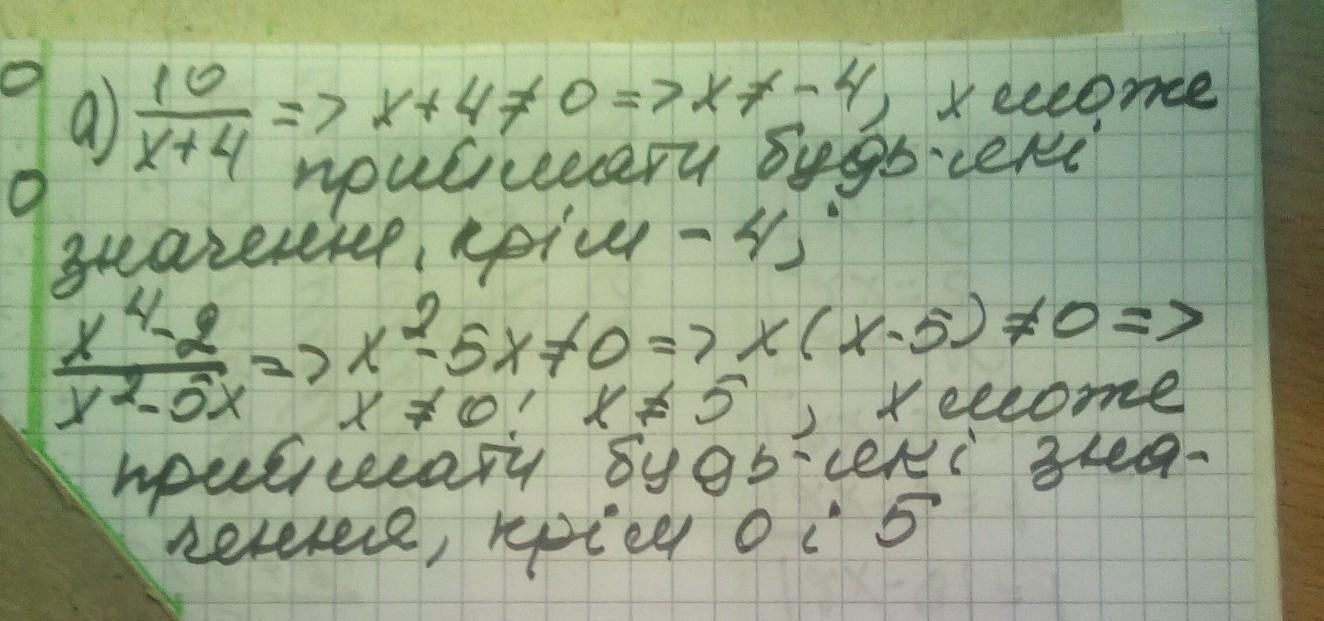 0
а) 10/(x+4) => x+4≠0 => x≠-4, x може
0 приймати будь-які
значення, крім -4;
(x⁴-2)/(x²-5x) => x²-5x≠0 => x(x-5)≠0 =>
x≠0; x≠5, x може
приймати будь-які зна-
чення, крім 0 і 5